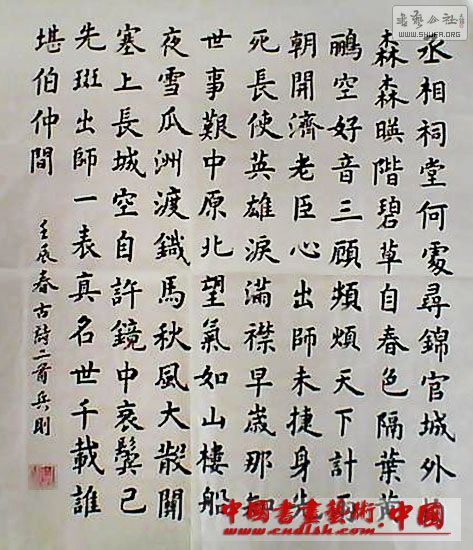 丞相祠堂何處尋錦官城外柏
森森暎階碧草自春色隔葉黃
鸝空好音三顧頻煩天下計兩
朝開濟老臣心出師未捷身先
死長使英雄淚滿襟早歲那知
世事艱中原北望氣如山樓船
夜雪瓜洲渡鐵馬秋風大散關
塞上長城空自許鏡中衰鬢已
先斑出師一表真名世千載誰
堪伯仲間
壬辰春古詩二首兵則
書藝公社
WWW.SHUFA.ORG
中國書畫藝術.中國